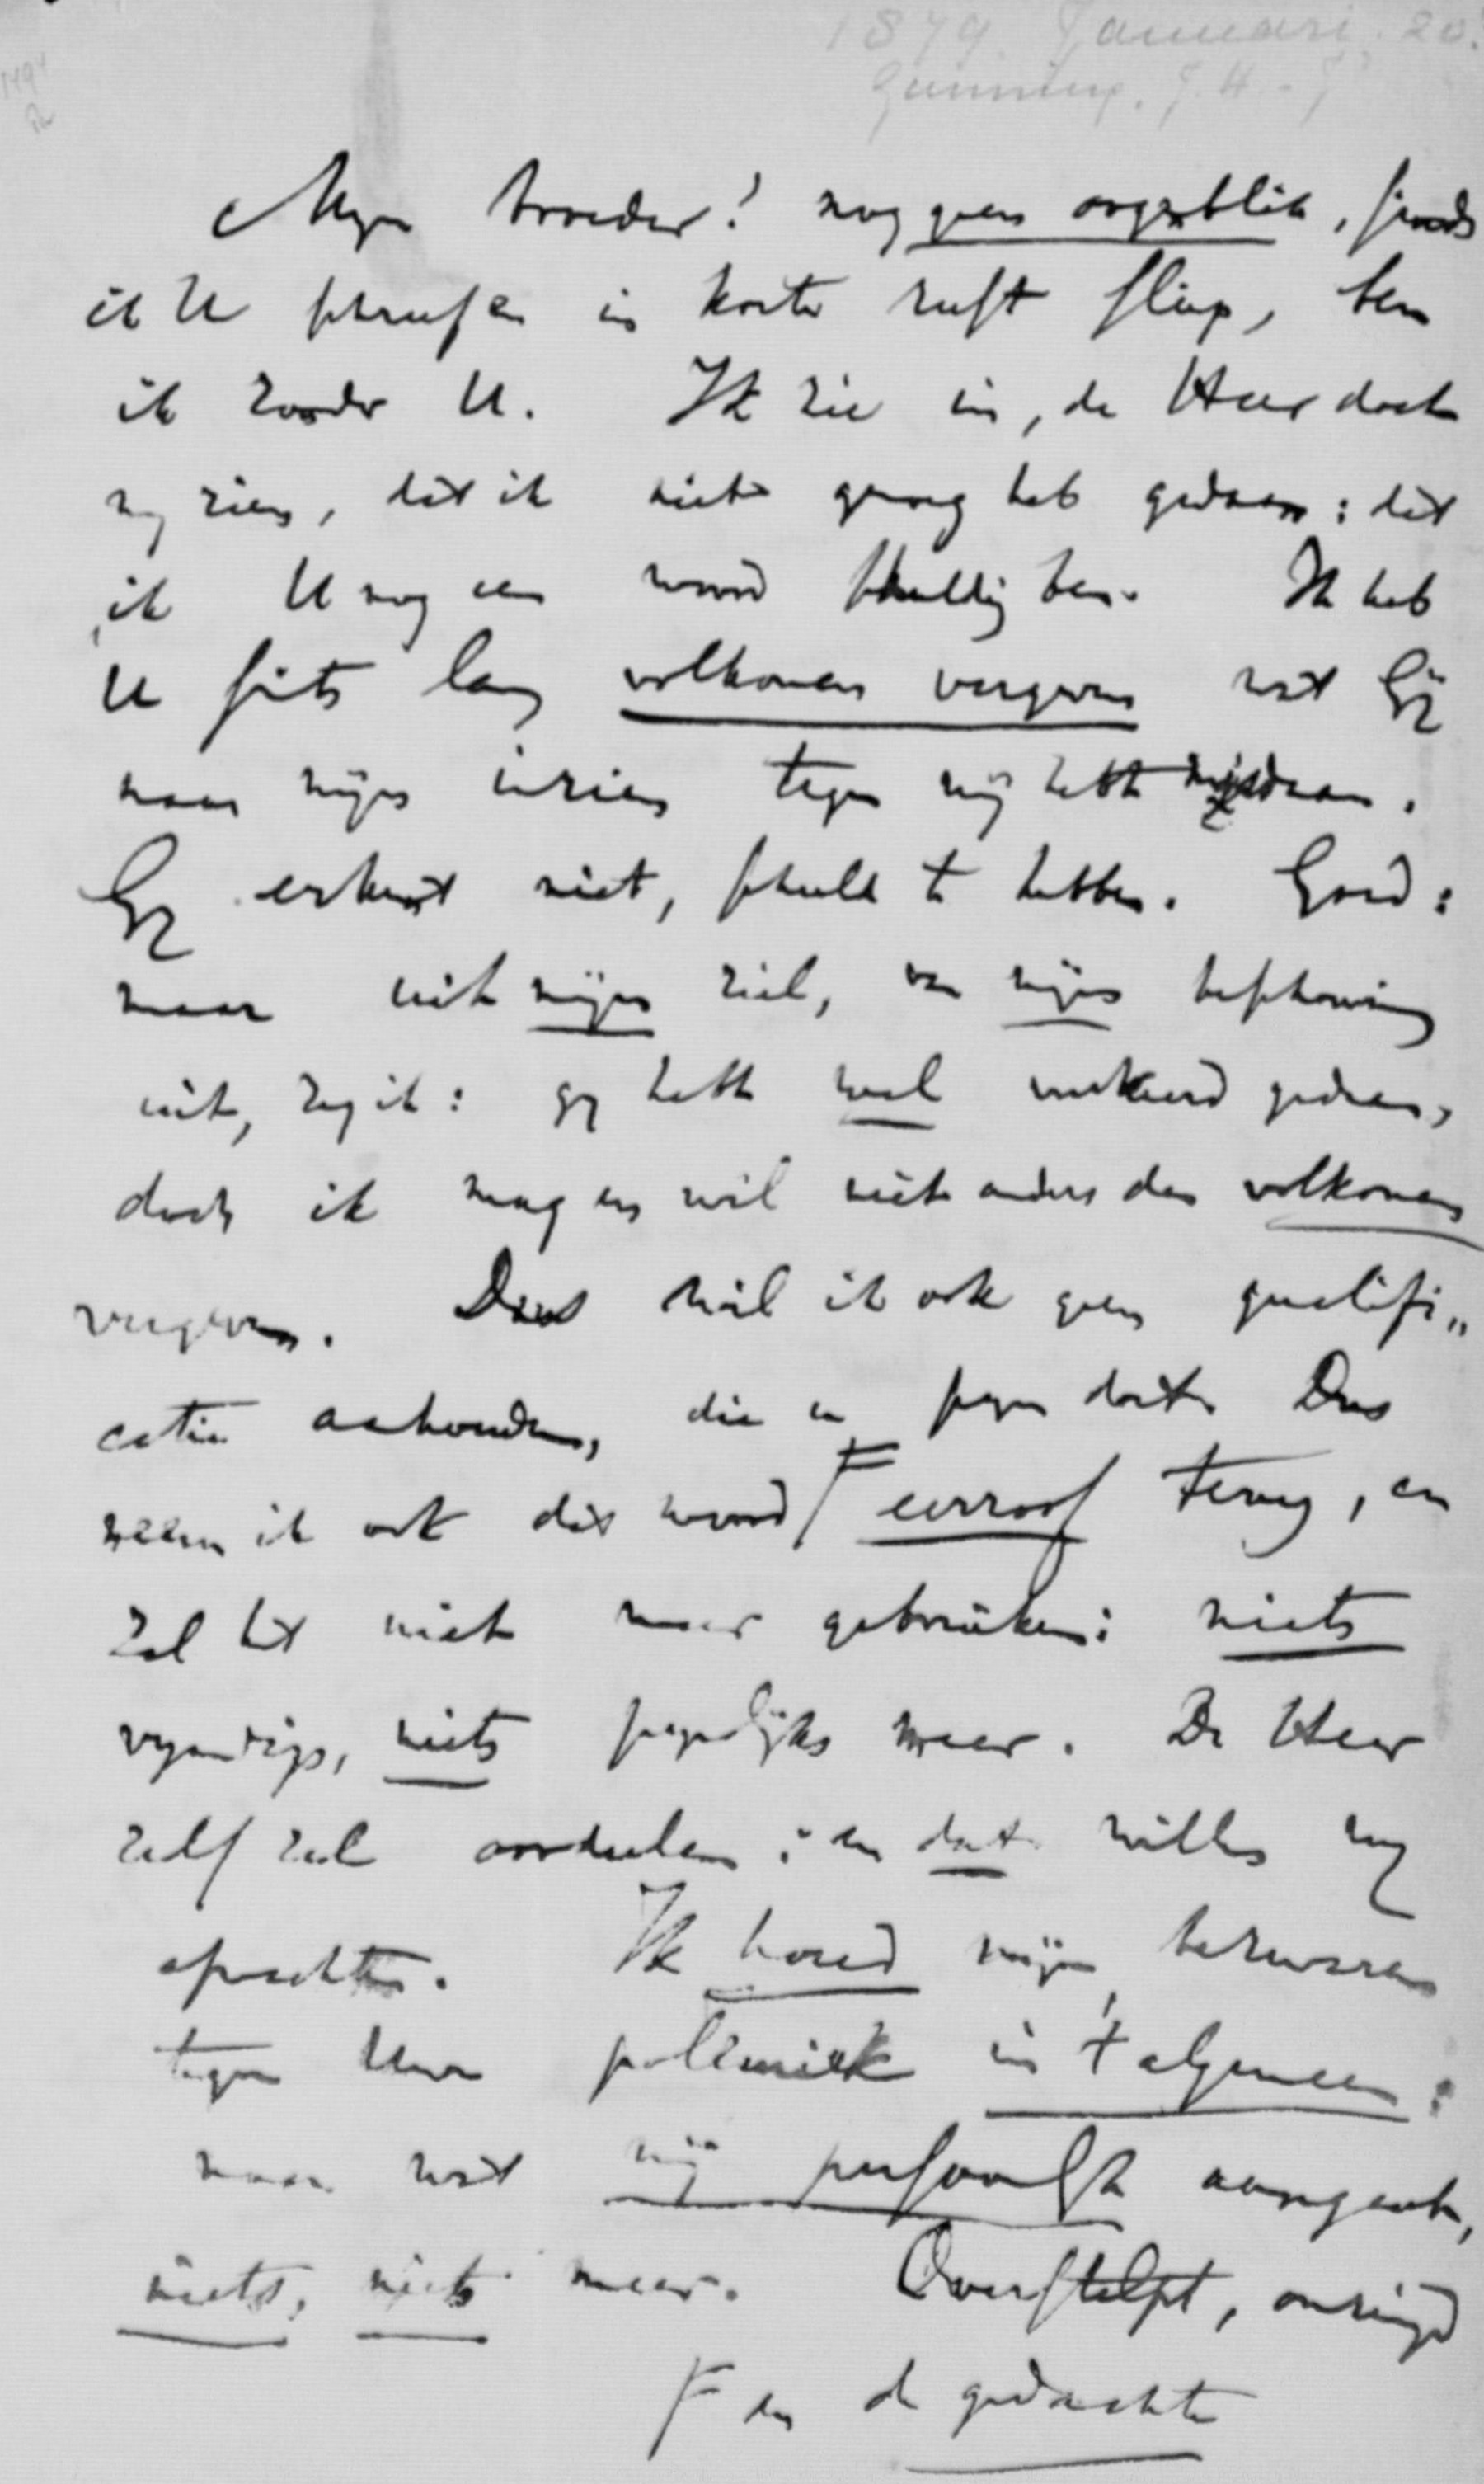 1879. Januari. 20.
Gunning, J.H. Jr
Mijn broeder! nog geen oogenblik, sinds
ik U schreef en korte rust sliep, ben
ik zonder U. Ik zie in, de Heer doet
mij zien, dat ik niet genoeg heb gedaan: dat
ik U nog een woord schuldig ben. Ik heb
U sints lang volkomen vergeven wat Gij
naar mijn inzien tegen mij hebt misdaan.
Gij erkent niet, schuld te hebben. Goed:
maar uit mijn ziel, van mijn beschouwing
uit, zeg ik: gij hebt wel verkeerd gedaan,
doch ik mag en wil niet anders dan volkomen
vergeven. Dus wil ik ook geen qualifi„
catie aanhouden, die u pijn doet. Dus
neem ik ook dat woord F eerroof terug, en
zal het niet meer gebruiken: niets
vijandigs, niets meer. De Heer
zelf zal oordeelen: en dat willen wij
afwachten. Ik houd mijn bezwaren
tegen Uwe polemiek in 't algemeen:
maar wat mij persoonlijk aangaat,
niets, niets meer. Overstelpt, omringd
F en de gedachte